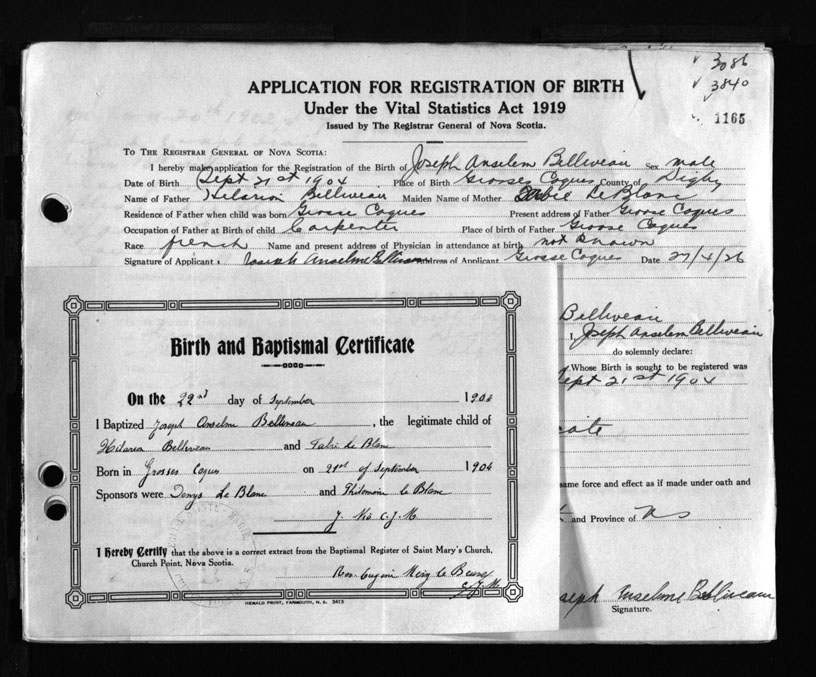 3086
3840
1165
APPLICATION FOR REGISTRATION OF BIRTH
Under the Vital Statistics Act 1919
Issued by The Registrar General of Nova Scotia.
TO THE REGISTRAR GENERAL OF NOVA SCOTIA:
I hereby make application for the Registration of the Birth of Joseph Anselem Belliveau Sex male
Date of Birth Sept 21st 1904 Place of Birth Grosses Coques County of Digby
Name of Father Hilarion Belliveau Maiden Name of Mother LeBlanc
Residence of Father when child was born Grosse Coques Present address of Father Grosse Coques
Occupation of Father at Birth of child Carpenter Place of birth of Father Grosse Coques
Race french Name and present address of Physician in attendance at birth not known
Signature of Applicant Joseph Anselme Belliveau Address of Applicant Grosse Coques Date 27/4/26
Belliveau
I, Joseph Anselem Belliveau
do solemnly declare:
Whose Birth is sought to be registered was
Sept 21st 1904
cate
same force and effect as if made under oath and
and Province of NS
Joseph Anselme Belliveau
Signature.
Birth and Baptismal Certificate
On the 22nd day of September 1904
I Baptized Joseph Anselme Belliveau, the legitimate child of
Hilarion Belliveau and le Blanc
Born in Grosses Coques on 21st of September 1904
Sponsors were Le Blanc and Philomène le Blanc
C.J.M
I Hereby Certify that the above is a correct extract from the Baptismal Register of Saint Mary's Church,
Church Point, Nova Scotia.
Rev. Eugène
HERALD PRINT, YARMOUTH, N. S. 3413